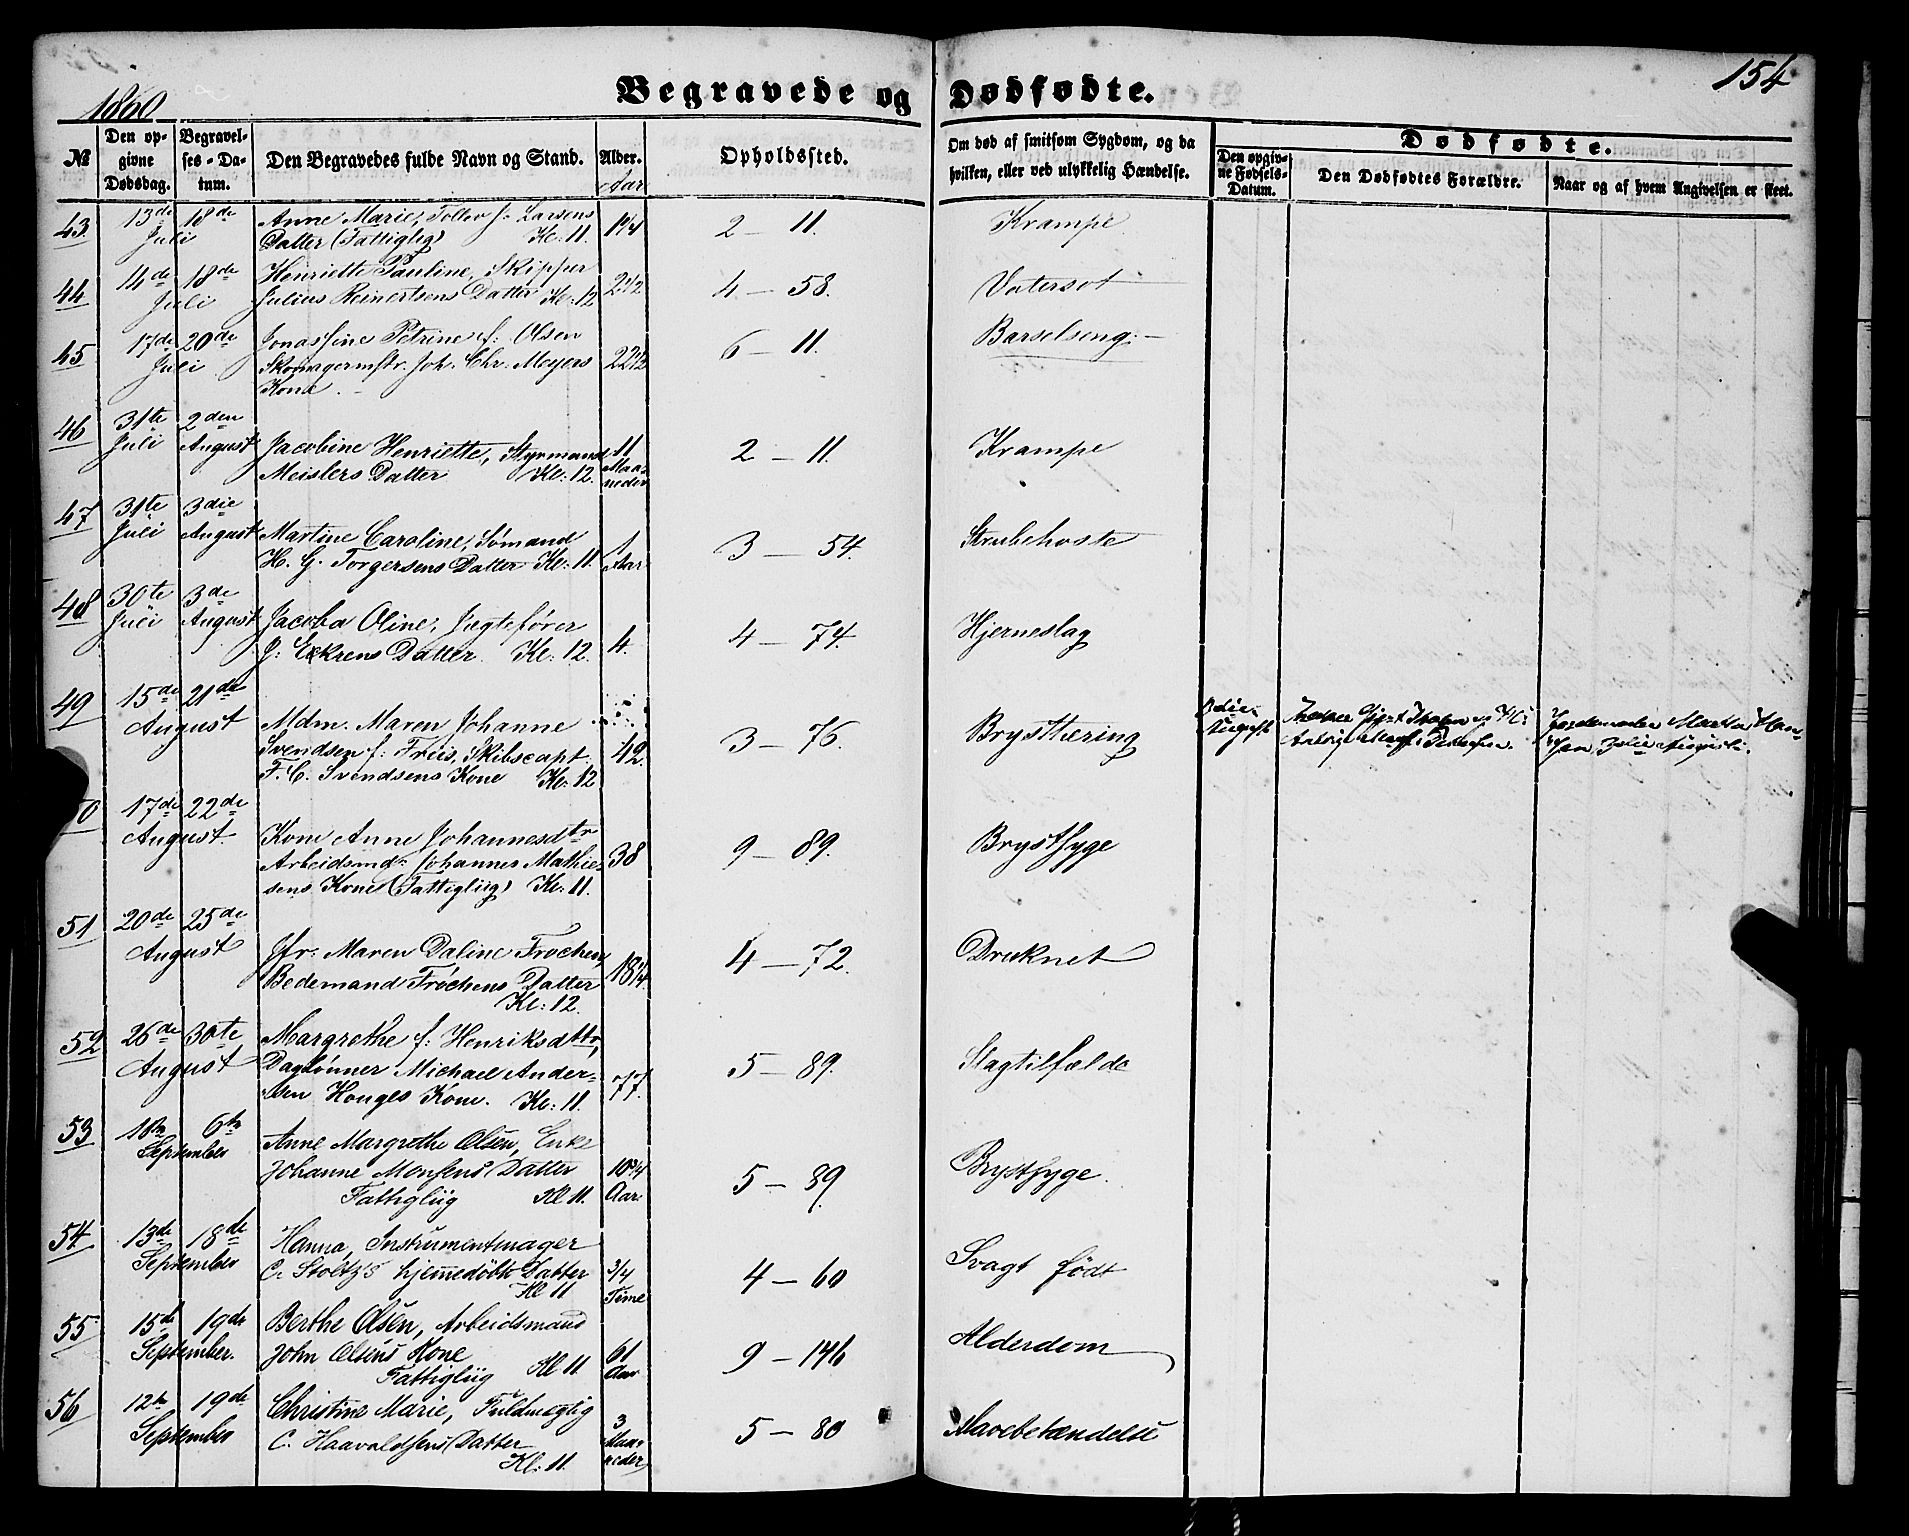 1860
Begravede og Dødfødte.
154
№
Den opgivne Dødsdag.
Begravelses-Datum.
Den Begravedes fulde Navn og Stand.
Alder.
Aar
Opholdssted.
Om død af smitsom Sygdom, og da
hvilken, eller ved ulykkelig Hændelse.
Dødfødte.
Den opgivne Fødsels-Datum.
Den Dødfødtes Forældre.
Naar og af hvem Angivelsen er skeet.
43 13de 18de Juli
Anne Marie, Larsens
Datter (Fattiglig) Kl: 11.
2 – 11. Krampe
44 14de 18de Juli
Henriette Pauline, Skipper
Julius Reinertsens Datter Kl: 12
2 1/2 4 – 58. Vatersot
45 17de 20de Juli
Jonassine Petrine f: Olsen
Skomagermstr. Joh. Chr. Meyers
Kone.
22 1/2 6 – 11. Barselseng.
46 31te Juli 2den August
Jacobine Henriette, Styrmand
Meislers Datter Kl: 12.
11 Maaneder 2 – 11. Krampe
47 31te Juli 3die August
Martine Caroline, Sømand
H. G. Torgersens Datter Kl: 11.
1 Aar 3 – 54. Strubehoste
48 30te Juli 3de August
Jacoba Oline, Jægtefører
J: Eekrens Datter. Kl: 12.
4. 4 – 74. Hjerneslag
49 15de 21de August
Mdm. Maren Johanne
Svendsen f: Freis, Skibscapt.
F. C. Svendsens Kone Kl: 12
42. 3 – 76. Brysttæring
August
50 17de 22de August.
Kone Anne Johannesdtr
Arbeidsmd: Johannes Mathie-
sens Kone (Fattiglig) Kl: 11.
38 9 – 89. Brystsyge
51 20de 25de August
Jfr: Maren Daline Frøchen,
Bedemand Frøchens Datter
Kl: 12.
18 1/4. 4 – 72. Druknet
52 26de 30te August
Margrethe f: Henriksdttr,
Daglønner Michael Ander-
sen Houges Kone. Kl: 11.
77. 5 – 89. Slagtilfælde
53 6te September
Anne Margrethe Olsen, Enke
Johanne Monsens Datter
Fattiglig Kl 11.
10 3/4 Aar. 5 – 89. Brystsyge.
54. 13de 18de September
Hanna, Instrumentmager
C. Stoltz's hjemmedøbte Datter
Kl 11
3/4 Time 4 – 60 Svagt født
55 15de 19de September.
Berthe Olsen, Arbeidsmand
John Olsens Kone
Fattiglig Kl 11.
61 Aar 9 – 146 Alderdom
56 12te 19de September
Christine Marie, Fuldmægtig
C. Haavaldsens Datter
Kl: 11.
3 Maaneder 5 – 80 Mavebetændelse